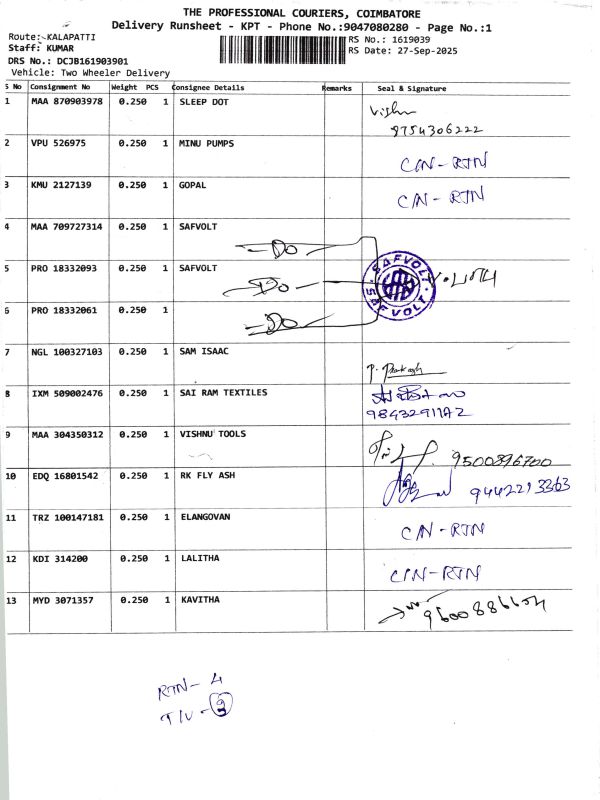 THE PROFESSIONAL COURIERS, COIMBATORE
Delivery Runsheet - KPT - Phone No.:9047080280 - Page No.:1
Route: KALAPATTI
RS No.: 1619039
Staff: KUMAR
RS Date: 27-Sep-2025
DRS No.: DCJB161903901
Vehicle: Two Wheeler Delivery
S No Consignment No Weight PCS Consignee Details Remarks Seal & Signature
1 MAA 870903978 0.250 1 SLEEP DOT
8754306222
2 VPU 526975 0.250 1 MINU PUMPS C/N-RTN
3 KMU 2127139 0.250 1 GOPAL C/N-RTN
4 MAA 709727314 0.250 1 SAFVOLT
-Do-
5 PRO 18332093 0.250 1 SAFVOLT
-Do-
SAFVOLT SAFVOLT
6 PRO 18332061 0.250 1
-Do-
7 NGL 100327103 0.250 1 SAM ISAAC
P. Prakash
8 IXM 509002476 0.250 1 SAI RAM TEXTILES
9 MAA 304350312 0.250 1 VISHNU TOOLS
9500896700
10 EDQ 16801542 0.250 1 RK FLY ASH
9442213363
11 TRZ 100147181 0.250 1 ELANGOVAN C/N-RTN
12 KDI 314200 0.250 1 LALITHA C/N-RTN
13 MYD 3071357 0.250 1 KAVITHA
RTN-4